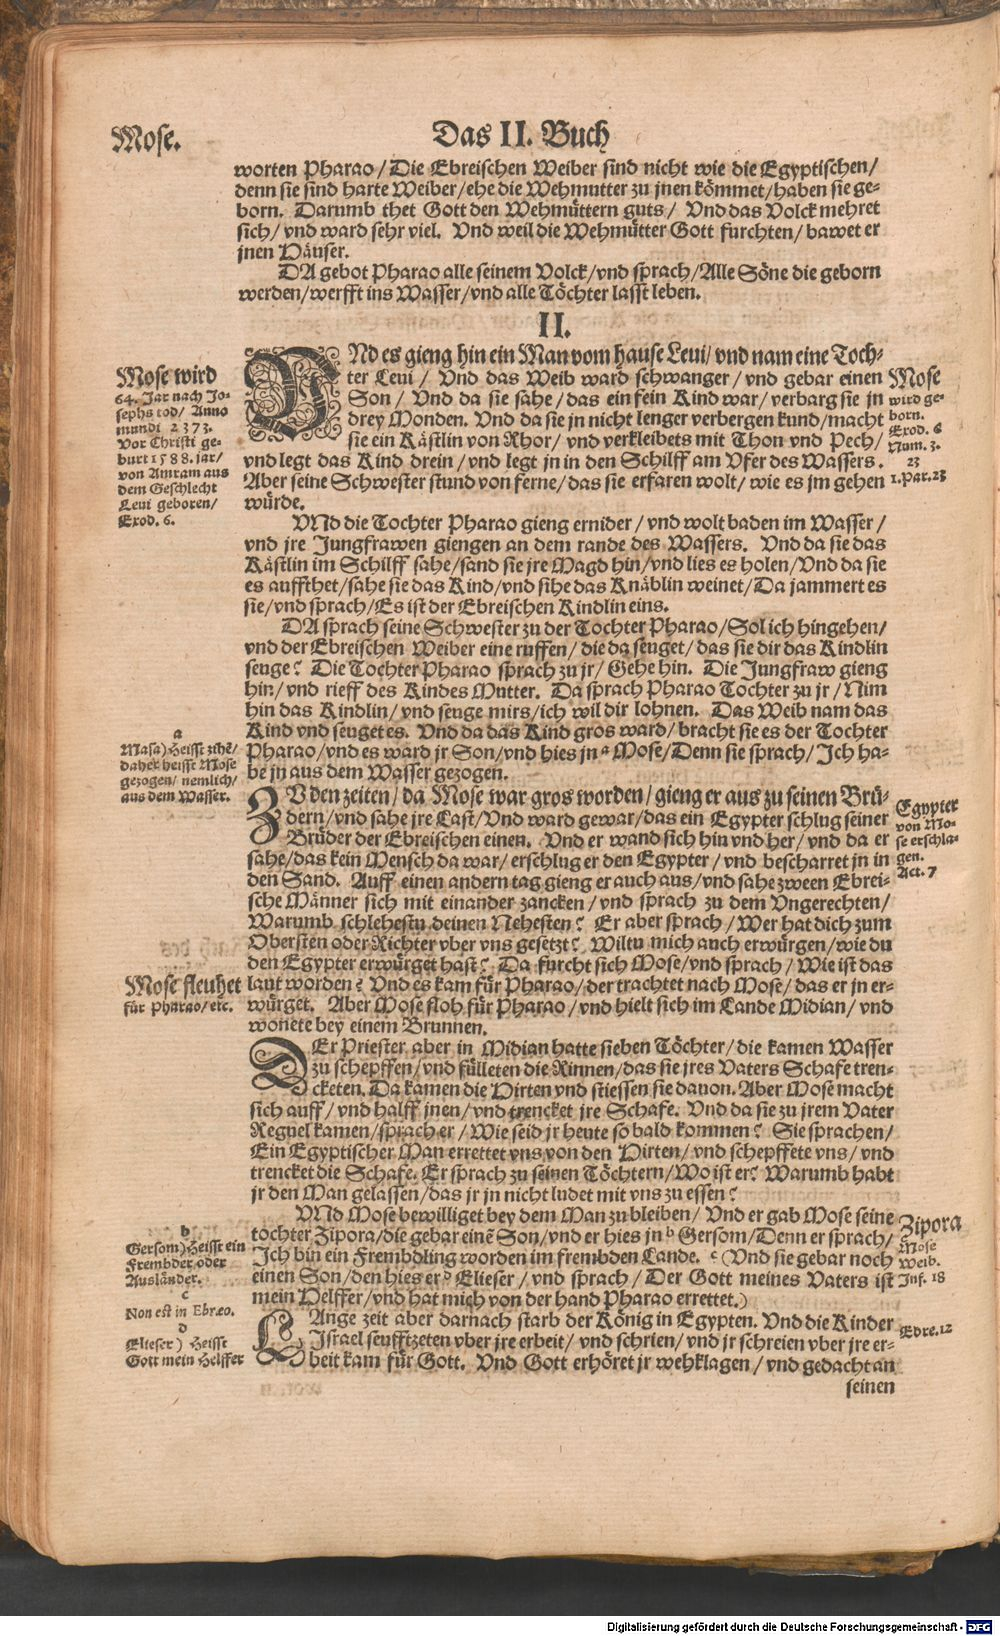 Mose.
Das II. Buch
worten Pharao / Die Ebreischen Weiber sind nicht wie die Egyptischen /
denn sie sind harte Weiber / ehe die Wehmutter zu jnen kömmet / haben sie ge-
born. Darumb thet Gott den Wehmüttern guts / Vnd das Volck mehret
sich / vnd ward sehr viel. Vnd weil die Wehmütter Gott furchten / bawet er
jnen Häuser.
DA gebot Pharao alle seinem Volck / vnd sprach / Alle Söne die geborn
werden / werfft ins Wasser / vnd alle Töchter lasst leben.
II.
VNd es gieng hin ein Man vom hause Leui / vnd nam eine Toch-
ter Leui / Vnd das Weib ward schwanger / vnd gebar einen
Son / Vnd da sie sahe / das ein fein Kind war / verbarg sie jn
drey Monden. Vnd da sie jn nicht lenger verbergen kund / macht
sie ein Kästlin von Rhor / vnd verkleibets mit Thon vnd Pech /
vnd legt das Kind drein / vnd legt jn in den Schilff am Vfer des Wassers.
Aber seine Schwester stund von ferne / das sie erfaren wolt / wie es jm gehen
würde.
Mose wird
64. Jar nach Jo-
sephs tod / Anno
mundi 2373.
Vor Christi ge-
burt 1588. jar /
von Amram aus
dem Geschlecht
Leui geboren /
Exod. 6.
Mose
wird ge-
born.
Exod. 6
Num. 3.
23
1. Par. 23
VNd die Tochter Pharao gieng ernider / vnd wolt baden im Wasser /
vnd jre Jungfrawen giengen an dem rande des Wassers. Vnd da sie das
Kästlin im Schilff sahe / sand sie jre Magd hin / vnd lies es holen / Vnd da sie
es auffthet / sahe sie das Kind / vnd sihe das Knäblin weinet / Da jammert es
sie / vnd sprach / Es ist der Ebreischen Kindlin eins.
DA sprach seine Schwester zu der Tochter Pharao / Sol ich hingehen /
vnd der Ebreischen Weiber eine ruffen / die da seuget / das sie dir das Kindlin
seuge? Die Tochter Pharao sprach zu jr / Gehe hin. Die Jungfraw gieng
hin / vnd rieff des Kindes Mutter. Da sprach Pharao Tochter zu jr / Nim
hin das Kindlin / vnd seuge mirs / ich wil dir lohnen. Das Weib nam das
Kind vnd seuget es. Vnd da das Kind gros ward / bracht sie es der Tochter
Pharao / vnd es ward jr Son / vnd hies jn a Mose / Denn sie sprach / Ich ha-
be jn aus dem Wasser gezogen.
a
Masa) Heisst zihẽ /
daher heisse Mose
gezogen / nemlich /
aus dem Wasser.
ZV den zeiten / da Mose war gros worden / gieng er aus zu seinen Brü-
dern / vnd sahe jre Last / Vnd ward gewar / das ein Egypter schlug seiner
Brüder der Ebreischen einen. Vnd er wand sich hin vnd her / vnd da er
sahe / das kein Mensch da war / erschlug er den Egypter / vnd bescharret jn in
den Sand. Auff einen andern tag gieng er auch aus / vnd sahe zween Ebrei-
sche Männer sich mit einander zancken / vnd sprach zu dem Vngerechten /
Warumb schlehestu deinen Nehesten? Er aber sprach / Wer hat dich zum
Obersten oder Richter vber vns gesetzt? Wiltu mich auch erwürgen / wie du
den Egypter erwürget hast? Da furcht sich Mose / vnd sprach / Wie ist das
laut worden? Vnd es kam für Pharao / der trachtet nach Mose / das er jn er-
würget. Aber Mose floh für Pharao / vnd hielt sich im Lande Midian / vnd
wonete bey einem Brunnen.
Egypter
von Mo-
se erschla-
gen.
Act. 7
Mose fleuhet
für Pharao / etc.
DEr Priester aber in Midian hatte sieben Töchter / die kamen Wasser
zu schepffen / vnd fülleten die Rinnen / das sie jres Vaters Schafe tren-
cketen. Da kamen die Hirten vnd stiessen sie dauon. Aber Mose macht
sich auff / vnd halff jnen / vnd trencket jre Schafe. Vnd da sie zu jrem Vater
Reguel kamen / sprach er / Wie seid jr heute so bald kommen? Sie sprachen /
Ein Egyptischer Man errettet vns von den Hirten / vnd schepffete vns / vnd
trencket die Schafe. Er sprach zu seinen Töchtern / Wo ist er? Warumb habt
jr den Man gelassen / das jr jn nicht ludet mit vns zu essen?
VNd Mose bewilliget bey dem Man zu bleiben / Vnd er gab Mose seine
tochter Zipora / die gebar einẽ Son / vnd er hies jn b Gersom / Denn er sprach /
Ich bin ein Frembdling worden im frembden Lande. c (Vnd sie gebar noch
einen Son / den hies er d Elieser / vnd sprach / Der Gott meines Vaters ist
mein Helffer / vnd hat mich von der hand Pharao errettet.)
b
Gersom) Heisst ein
Frembder oder
Ausländer.
c
Non est in Ebræo.
d
Elieser) Heisst
Gott mein Helffer
Zipora
Mose
Weib.
Inf. 18
LAnge zeit aber darnach starb der König in Egypten. Vnd die Kinder
Israel seufftzeten vber jre erbeit / vnd schrien / vnd jr schreien vber jre er-
beit kam für Gott. Vnd Gott erhöret jr wehklagen / vnd gedacht an
seinen
Digitalisierung gefördert durch die Deutsche Forschungsgemeinschaft - DFG